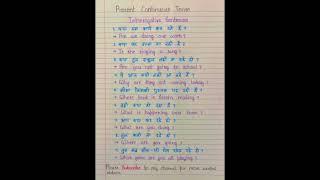 Present Continuous Tense
Interrogative Sentences
1. क्या हम अपना काम कर रहे हैं ?
→ Are we doing our work ?
2. क्या वह गाना गा रही है ?
→ Is she singing a song ?
3. क्या तुम स्कूल नहीं जा रहे हो ?
→ Are you not going to school ?
4. वे आज क्यों नहीं आ रहे हैं ?
→ Why are they not coming today ?
5. सीता कौनसी पुस्तक पढ़ रही है ?
→ Which book is Seeta reading ?
6. वहाँ क्या हो रहा है ?
→ What is happening over there ?
7. आप क्या कर रहे हो ?
→ What are you doing ?
8. तुम कहाँ जा रहे हो ?
→ Where are you going ?
9. तुम सब कौन-सा खेल खेल रहे हो ?
→ Which game are you all playing ?
Please Subscribe to my channel for more useful videos.